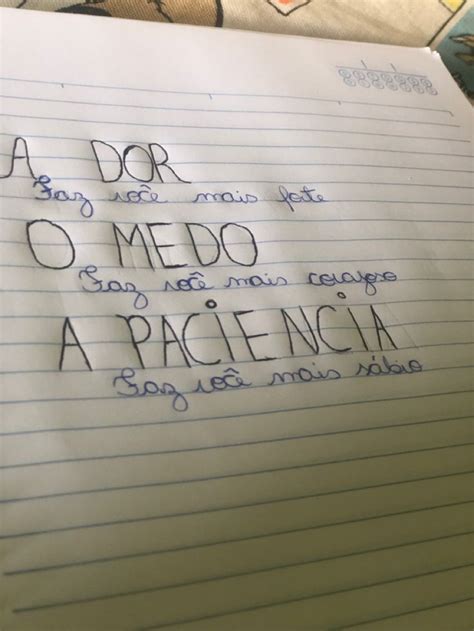 A DOR
Faz você mais forte
O MEDO
Faz você mais corajoso
A PACIENCIA
Faz você mais sábio